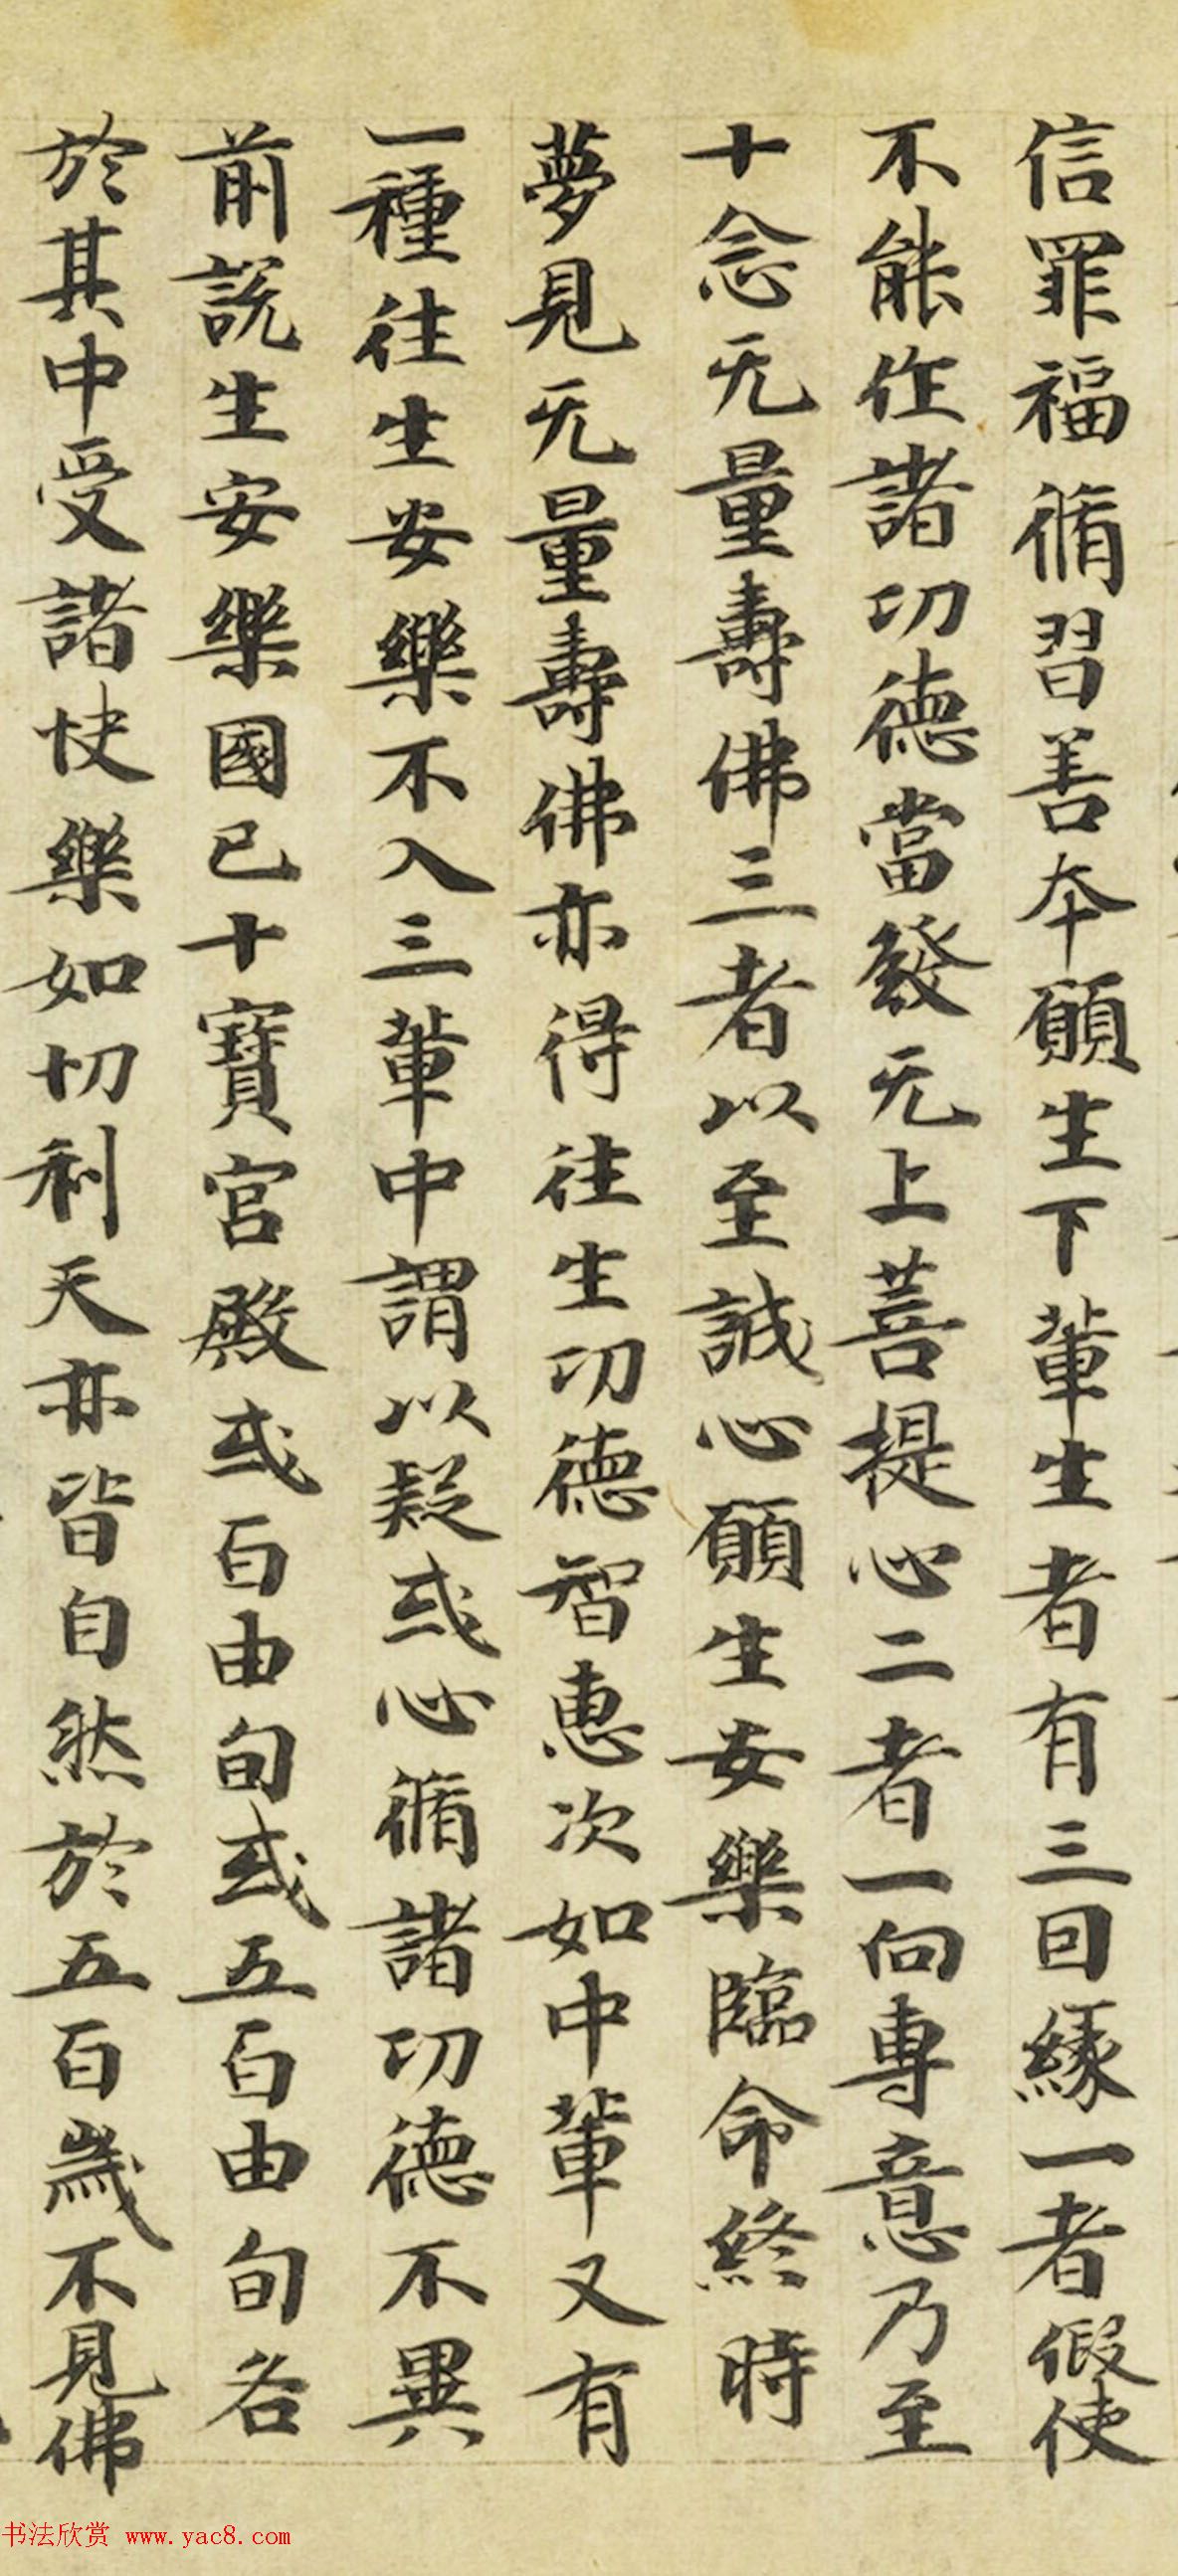 信罪福脩習善本願生下輩生者有三因緣一者假使
不能作諸功德當發无上菩提心二者一向專意乃至
十念无量壽佛三者以至誠心願生安樂臨命終時
夢見无量壽佛亦得往生功德智惠次如中輩又有
一種往生安樂不入三輩中謂以疑或心脩諸功德不異
前說生安樂國已十寶宮殿或百由旬或五百由旬各
於其中受諸快樂如切利天亦皆自然於五百歲不見佛
书法欣赏 www.yac8.com